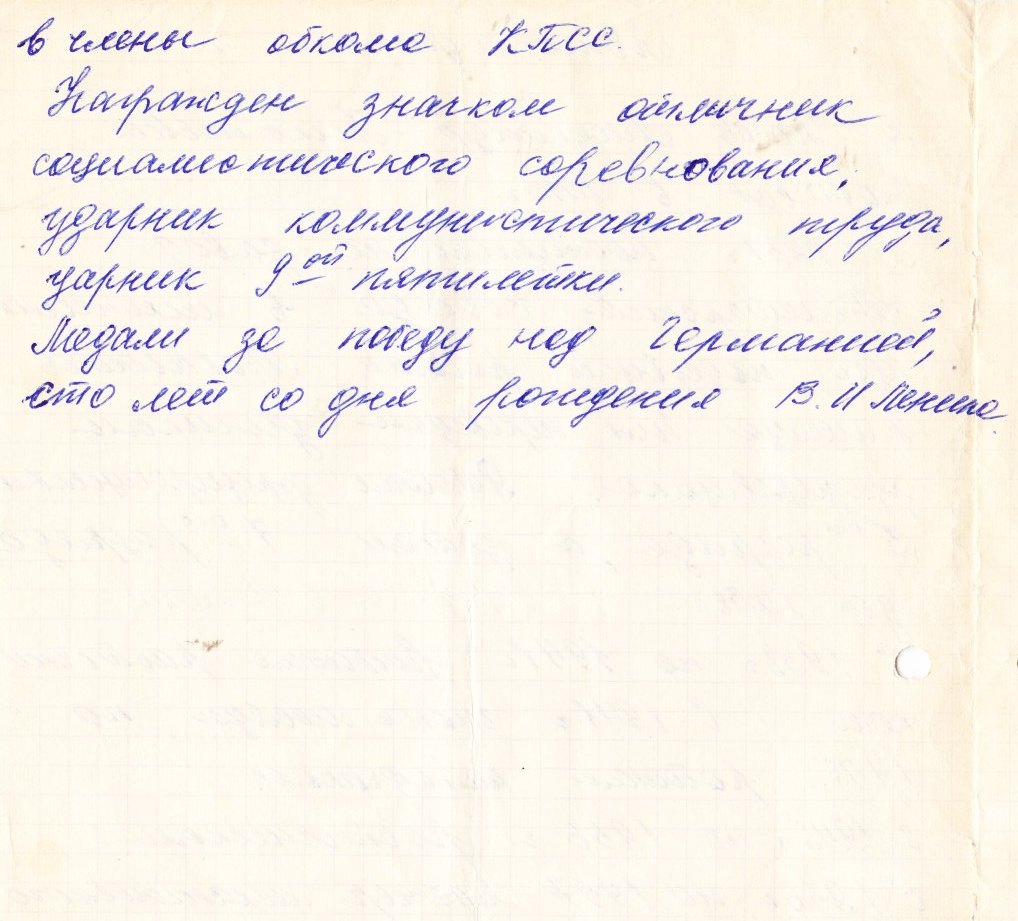 в члены обкома КПСС.
Награжден значком отличник
социалистического соревнования,
ударник коммунистического труда,
уарник 9ой пятилетки.
Медали за победу над Германией,
сто лет со дня рождения В. И Ленина.